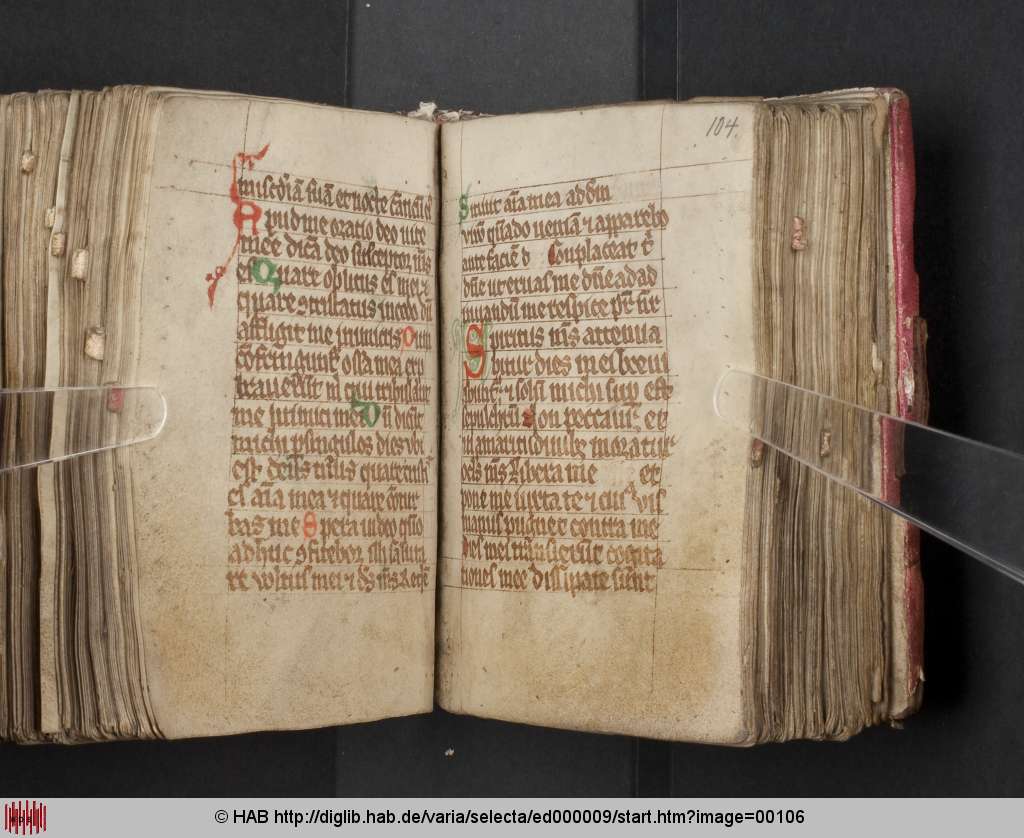 misc͞diā suā et nocte cāticū ei
Apud me oratio deo vite
mee dicā deo susceptor m̄s
es Quare oblitus es mei ⁊
quare ꝯtristatus incedo dū
affligit me inimicus Dum
cōfringunt᷑ ossa mea exp
brauerūt m̄ qui tribulant
me inimici mei Dū dicūt
michi p singulos dies vbi
est deus tuus quare trist᷑
es aīa mea ⁊ quare ꝯtur
bas me Spera in deo qm̄
adhuc ꝯfitebor illi saluta
re vultus mei ⁊ ds m̄s
104.
Sitiuit aīa mea ad dm̄
viuū quādo veniā ⁊ apparebo
ante faciē d Conplaceat t̄
dn̄e vt eruas me dn̄e ad ad
iuuandū me respice
Spiritus m̄s attenua
bitur dies mei breuia
bunt᷑ ⁊ solū michi sup est
sepulchrū Non peccaui et
in amaritudinibꝫ moratur
ocls m̄s Libera me et
pone me iuxta te ⁊ cuiꝰ vis
manus pugnet contra me
Dies mei transierūt cogita
tiones mee dissipate sunt
© HAB http://diglib.hab.de/varia/selecta/ed000009/start.htm?image=00106